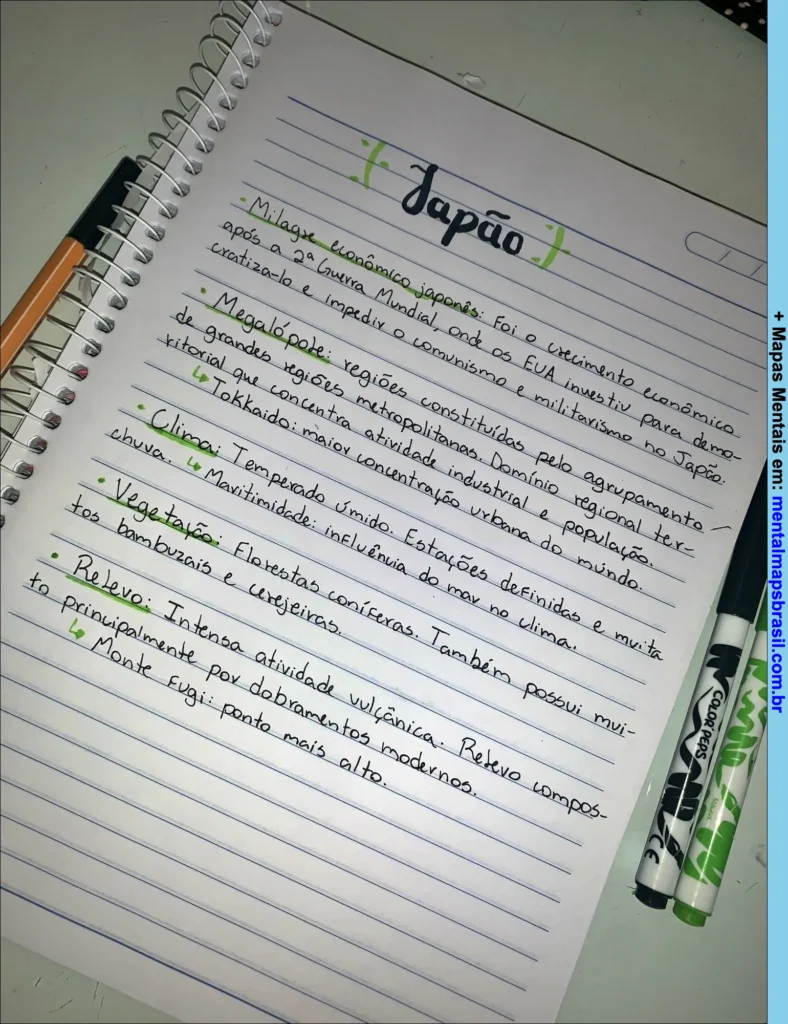 Japão
• Milagre econômico japonês: Foi o crescimento econômico
após a 2ª Guerra Mundial, onde os EUA investiu para demo-
cratiza-lo e impedir o comunismo e militarismo no Japão.
• Megalópole: regiões constituídas pelo agrupamento
de grandes regiões metropolitanas. Domínio regional ter-
ritorial que concentra atividade industrial e população.
↳ Tokkaido: maior concentração urbana do mundo.
• Clima: Temperado úmido. Estações definidas e muita
chuva. ↳ Maritimidade: influência do mar no clima.
• Vegetação: Florestas coníferas. Também possui mui-
tos bambuzais e cerejeiras.
• Relevo: Intensa atividade vulçânica. Relevo compos-
to principalmente por dobramentos modernos.
↳ Monte Fugi: ponto mais alto.
COLOR'PEPS
CE
+ Mapas Mentais em: mentalmapsbrasil.com.br